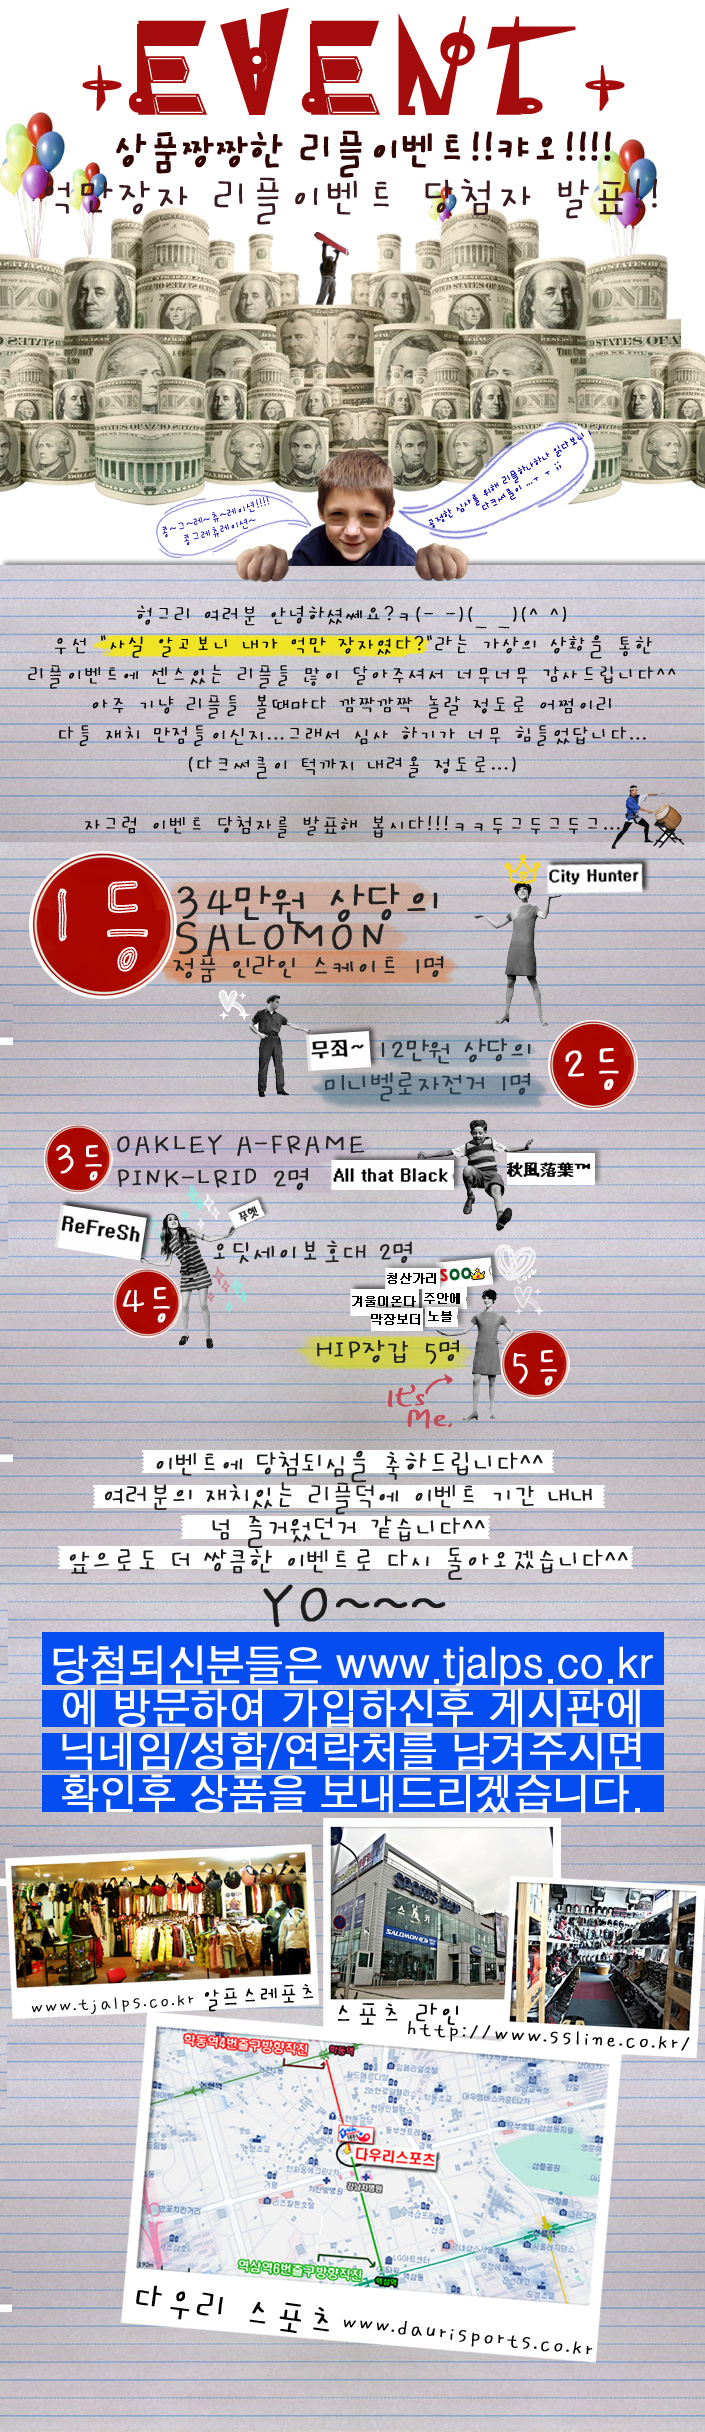 EVENT
상품짱짱한 리플이벤트!!캬오!!!!
억만장자 리플이벤트 당첨자 발표!!
공정한 심사를 위해 리플하나하나 읽다보니
다크써클이
콩~그~레~츄~레이션!!!!
콩그레츄레이션~
헝그리 여러분 안녕하셨쎄요?ㅋ(- -)(_ _)(^ ^)
우선 "사실 알고보니 내가 억만 장자였다?"라는 가상의 상황을 통한
리플이벤트에 센스있는 리플들 많이 달아주셔서 너무너무 감사드립니다^^
아주 기냥 리플들 볼때마다 깜짝깜짝 놀랄 정도로 어쩜이리
다들 재치 만점들이신지...그래서 심사 하기가 너무 힘들었답니다...
(다크써클이 턱까지 내려올 정도로...)
자그럼 이벤트 당첨자를 발표해 봅시다!!!ㅋㅋ두그두그두그...
City Hunter
1등
34만원 상당의
SALOMON
정품 인라인 스케이트 1명
무죄~
12만원 상당의
미니벨로자전거 1명
2등
3등
OAKLEY A-FRAME
PINK-LRID 2명
All that Black
秋風落葉™
ReFreSh
푸헷
오딧세이보호대 2명
4등
청산가리
SOO
겨울이온다
주안에
막장보더
노블
HIP장갑 5명
5등
It's
Me.
love
이벤트에 당첨되심을 축하드립니다^^
여러분의 재치있는 리플덕에 이벤트 기간 내내
넘 즐거웠던거 같습니다^^
앞으로도 더 쌍큼한 이벤트로 다시 돌아오겠습니다^^
YO~~~
당첨되신분들은 www.tjalps.co.kr
에 방문하여 가입하신후 게시판에
닉네임/성함/연락처를 남겨주시면
확인후 상품을 보내드리겠습니다.
스키
SALOMON
www.tjalps.co.kr 알프스레포츠
스포츠 라인
http://www.55line.co.kr/
학동역4번출구방향직진
학동역
다우리스포츠
강남차병원
LG아트센터
삼릉공원
역삼역6번출구방향직진
역삼역
다우리 스포츠 www.daurisports.co.kr